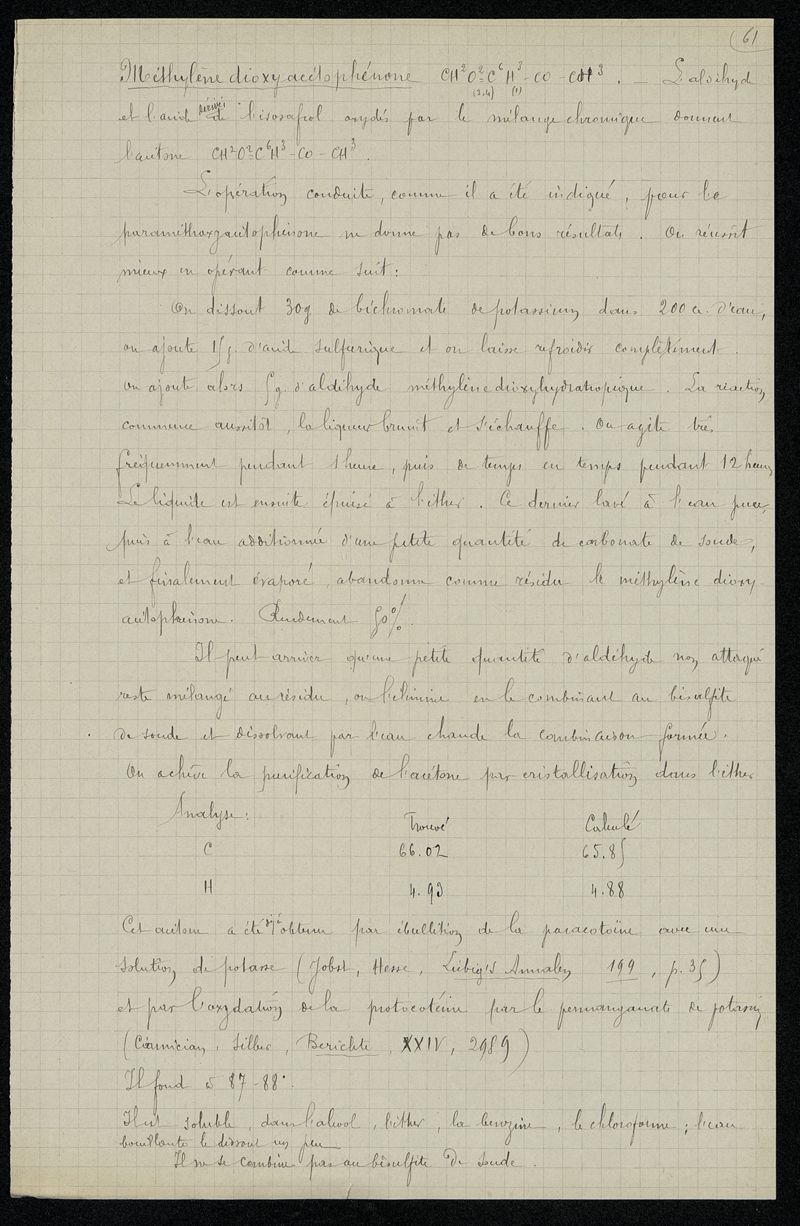 61
Méthylène dioxyacétophénone CH²O²=C⁶H³-CO-CH³. — L'aldéhyd
(3,4) (1)
et l'acide dérivés de l'isosafrol oxydés par le mélange chromique donnent
l'acétone CH²O²=C⁶H³-CO-CH³.
L'opération conduite, comme il a été indiqué, pour la
paraméthoxyacétophénone ne donne pas de bons résultats. On réussit
mieux en opérant comme suit:
On dissout 30g de bichromate de potassium dans 200 cc. d'eau,
on ajoute 15g. d'acide sulfurique et on laisse refroidir complètement.
On ajoute alors 5g. d'aldéhyde méthylène dioxyhydratropique. La réaction
commence aussitôt, la liqueur brunit et s'échauffe. On agite très
fréquemment pendant 1 heure, puis de temps en temps pendant 12 heures
Le liquide est ensuite épuisé à l'éther. Ce dernier lavé à l'eau pure,
puis à l'eau additionnée d'une petite quantité de carbonate de soude,
et finalement évaporé, abandonne comme résidu le méthylène dioxy-
acétophénone. Rendement 50%.
Il peut arriver qu'une petite quantité d'aldéhyde non attaqué
reste mélangé au résidu, on l'élimine en le combinant au bisulfite
de soude et dissolvant par l'eau chaude la combinaison formée.
On achève la purification de l'acétone par cristallisation dans l'éther
Analyse: Trouvé Calculé
C 66.02 65.85
H 4.93 4.88
Cet acétone a été déjà obtenu par ébullition de la paracotoïne avec une
solution de potasse (Jobst, Hesse, Liebig's Annalen 199, p.35)
et par l'oxydation de la protocotéine par le permanganate de potassium
(Ciamician, Silber, Berichte, XXIV, 2989)
Il fond à 87-88°.
Il est soluble, dans l'alcool, l'éther, la benzine, le chloroforme; l'eau
bouillante le dissout un peu
Il ne se combine pas au bisulfite de soude.